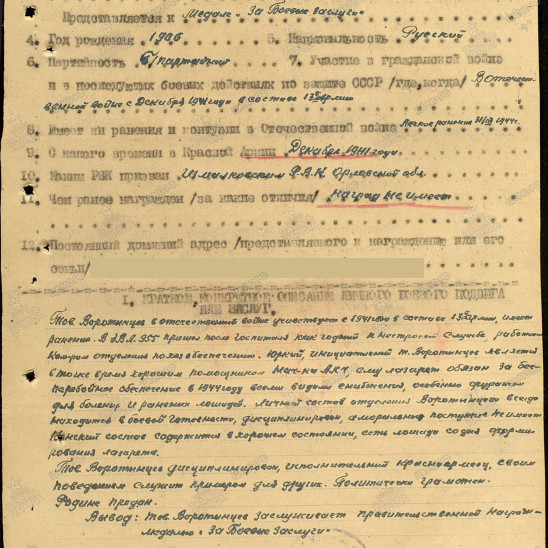 Представляется к Медаль "За Боевые Заслуги"
4. Год рождения 1906 5. Национальность Русский
6. Партийность б/партийный 7. Участие в гражданской войне
и в последующих боевых действиях по защите СССР /где, когда/ В отечест-
венной войне с декабря 1941 года в составе 13й армии
8. Имеет ли ранения и контузии в Отечественной войне Легкое ранение 1944г.
9. С какого времени в Красной Армии Декабря 1941 года.
10. Каким РВК призван Измалковским Р.В.К. Орловской обл.
11. Чем ранее награжден /за какие отличия/ Наград не имеет
12. Постоянный домашний адрес /представляемого к награждению или его
семьи/
I. КРАТКОЕ, КОНКРЕТНОЕ ОПИСАНИЕ ЛИЧНОГО БОЕВОГО ПОДВИГА
ИЛИ ЗАСЛУГ.
Тов. Воротынцев в отечественной войне участвует с 1941 года в составе 13й армии, имеет
ранение. В 355 пришел после госпиталя как годный к нестроевой службе, работает
отделения по хоз обеспечению. Юркий, инициативный т. Воротынцев является
в тоже время хорошим помощником лазарет обязан за бес-
перебойное обеспечение в 1944 году всеми видами снабжения, особенно фуражом
для больных и раненых лошадей. Личный состав отделения Воротынцева всегда
находится в боевой готовности, дисциплинирован, аморальных поступков не имеет
Конский состав содержится в хорошем состоянии, есть лошади со дня форми-
рования лазарета.
Тов. Воротынцев дисциплинирован, исполнительный красноармеец, своим
поведением служит примером для других. Политически грамотен.
Родине предан.
Вывод: Тов Воротынцев Заслуживает правительственной награды-
медалью "За Боевые Заслуги"